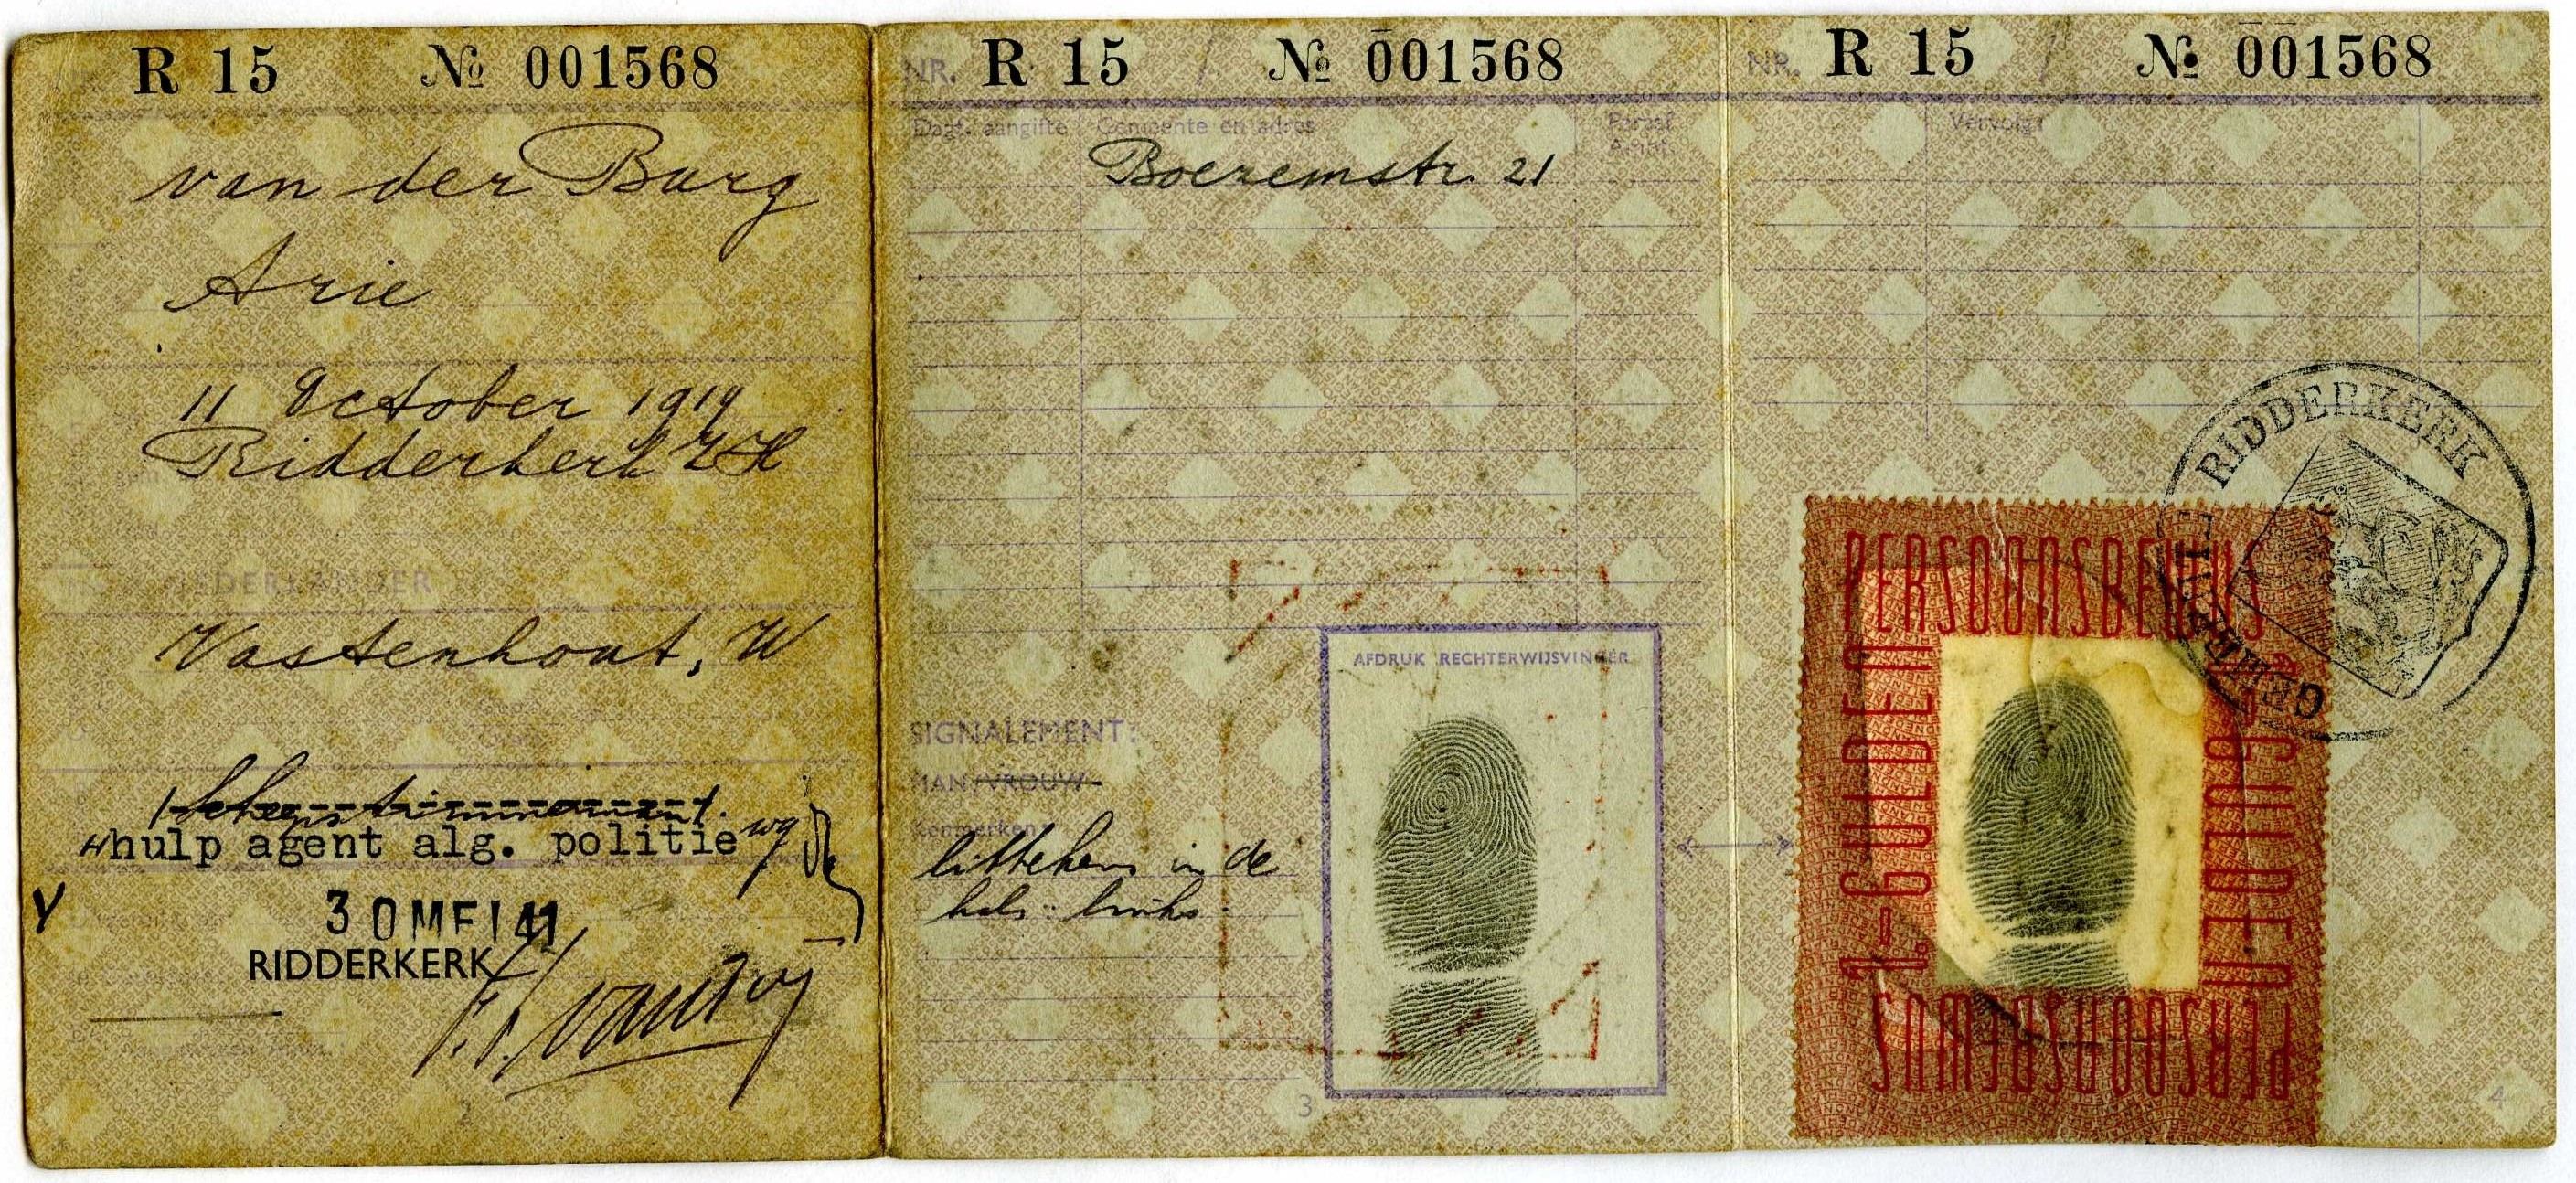 R 15 № 001568
van der Burg
Arie
11 October 1919
Ridderkerk ZH
NEDERLANDER
Vastenhout, W
scheepstimmerman
hulp agent alg. politie wg
V
30 MEI 41
RIDDERKERK
NR. R 15 / № 001568
Dagt. aangifte Gemeente en adres Paraaf Ambt.
Boezemstr. 21
SIGNALEMENT:
MAN/VROUW
Kenmerken:
litteken in de
hals: links.
AFDRUK RECHTERWIJSVINGER
3
NR. R 15 / № 001568
Vervolg:
GEMEENTE RIDDERKERK
PERSOONSBEWIJS
1.-GULDEN
1.-GULDEN
PERSOONSBEWIJS
4